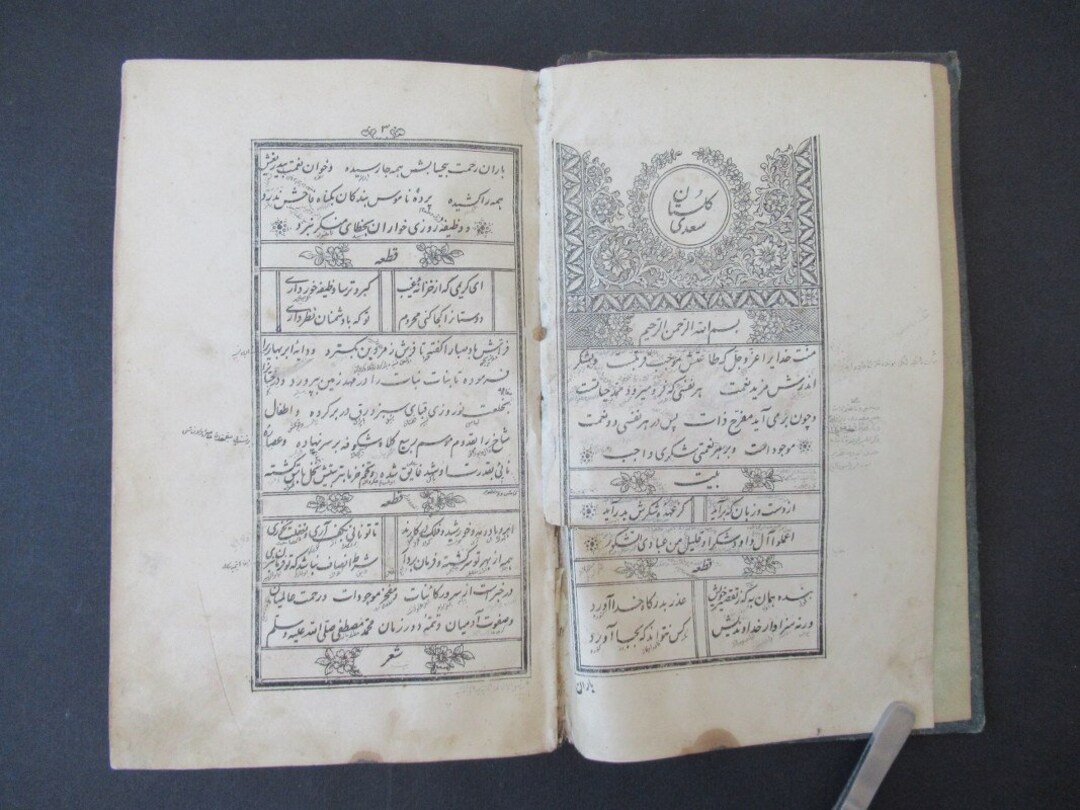 گلستان
سعدی
بسم الله الرحمن الرحیم
منت خدایرا عز و جل که طاعتش موجب قربتست و بشکر
اندرش مزید نعمت هر نفسی که فرو میرود ممد حیاتست
و چون برمی آید مفرح ذات پس در هر نفسی دو نعمت
موجود است و بر هر نعمتی شکری واجب
بیت
از دست و زبان که برآید کز عهده شکرش بدر آید
اعملوا آل داود شکرا و قلیل من عبادی الشکور
قطعه
بنده همان به که ز تقصیر خویش عذر بدرگاه خدا آورد
ورنه سزاوار خداوندیش کس نتواند که بجا آورد
باران
۳
باران رحمت بیحسابش همه جا رسیده و خوان نعمت بیدریغش
همه را کشیده پرده ناموس بندگان بگناه فاحش ندرد
و وظیفه روزی خواران بخطای منکر نبرد
قطعه
ای کریمی که از خزانه غیب گبر و ترسا وظیفه خور داری
دوستانرا کجا کنی محروم تو که با دشمنان نظر داری
فراش باد صبا را گفته تا فرش زمردین بگسترد و دایه ابر بهاریرا
فرموده تا بنات نبات را در مهد زمین بپرورد درختانرا
بخلعت نوروزی قبای سبز ورق در بر کرده و اطفال
شاخ را بقدوم موسم ربیع کلاه شکوفه بر سر نهاده و عصاره
نائی بقدرت او شهد فایق شده و تخم خرما بتربیتش نخل باسق گشته
قطعه
ابر و باد و مه و خورشید و فلک در کارند تا تو نانی بکف آری و بغفلت نخوری
همه از بهر تو سرگشته و فرمان بردار شرط انصاف نباشد که تو فرمان نبری
در خبرست از سرور کائنات و مفخر موجودات و رحمت عالمیان
و صفوت آدمیان و تتمه دور زمان محمد مصطفی صلی الله علیه وسلم
شعر